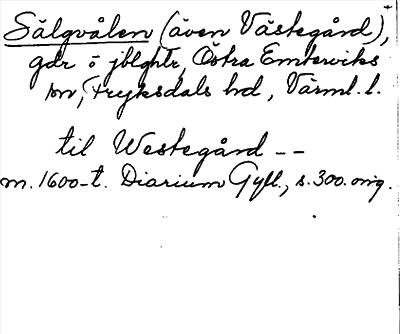 Sälgvålen (även Västegård),
gdr o jblghtr, Östra Emterviks
sn, Fryksdals hd, Värml. l.
til Westegård --
m. 1600-t. Diarium Gyll., s. 300. orig.